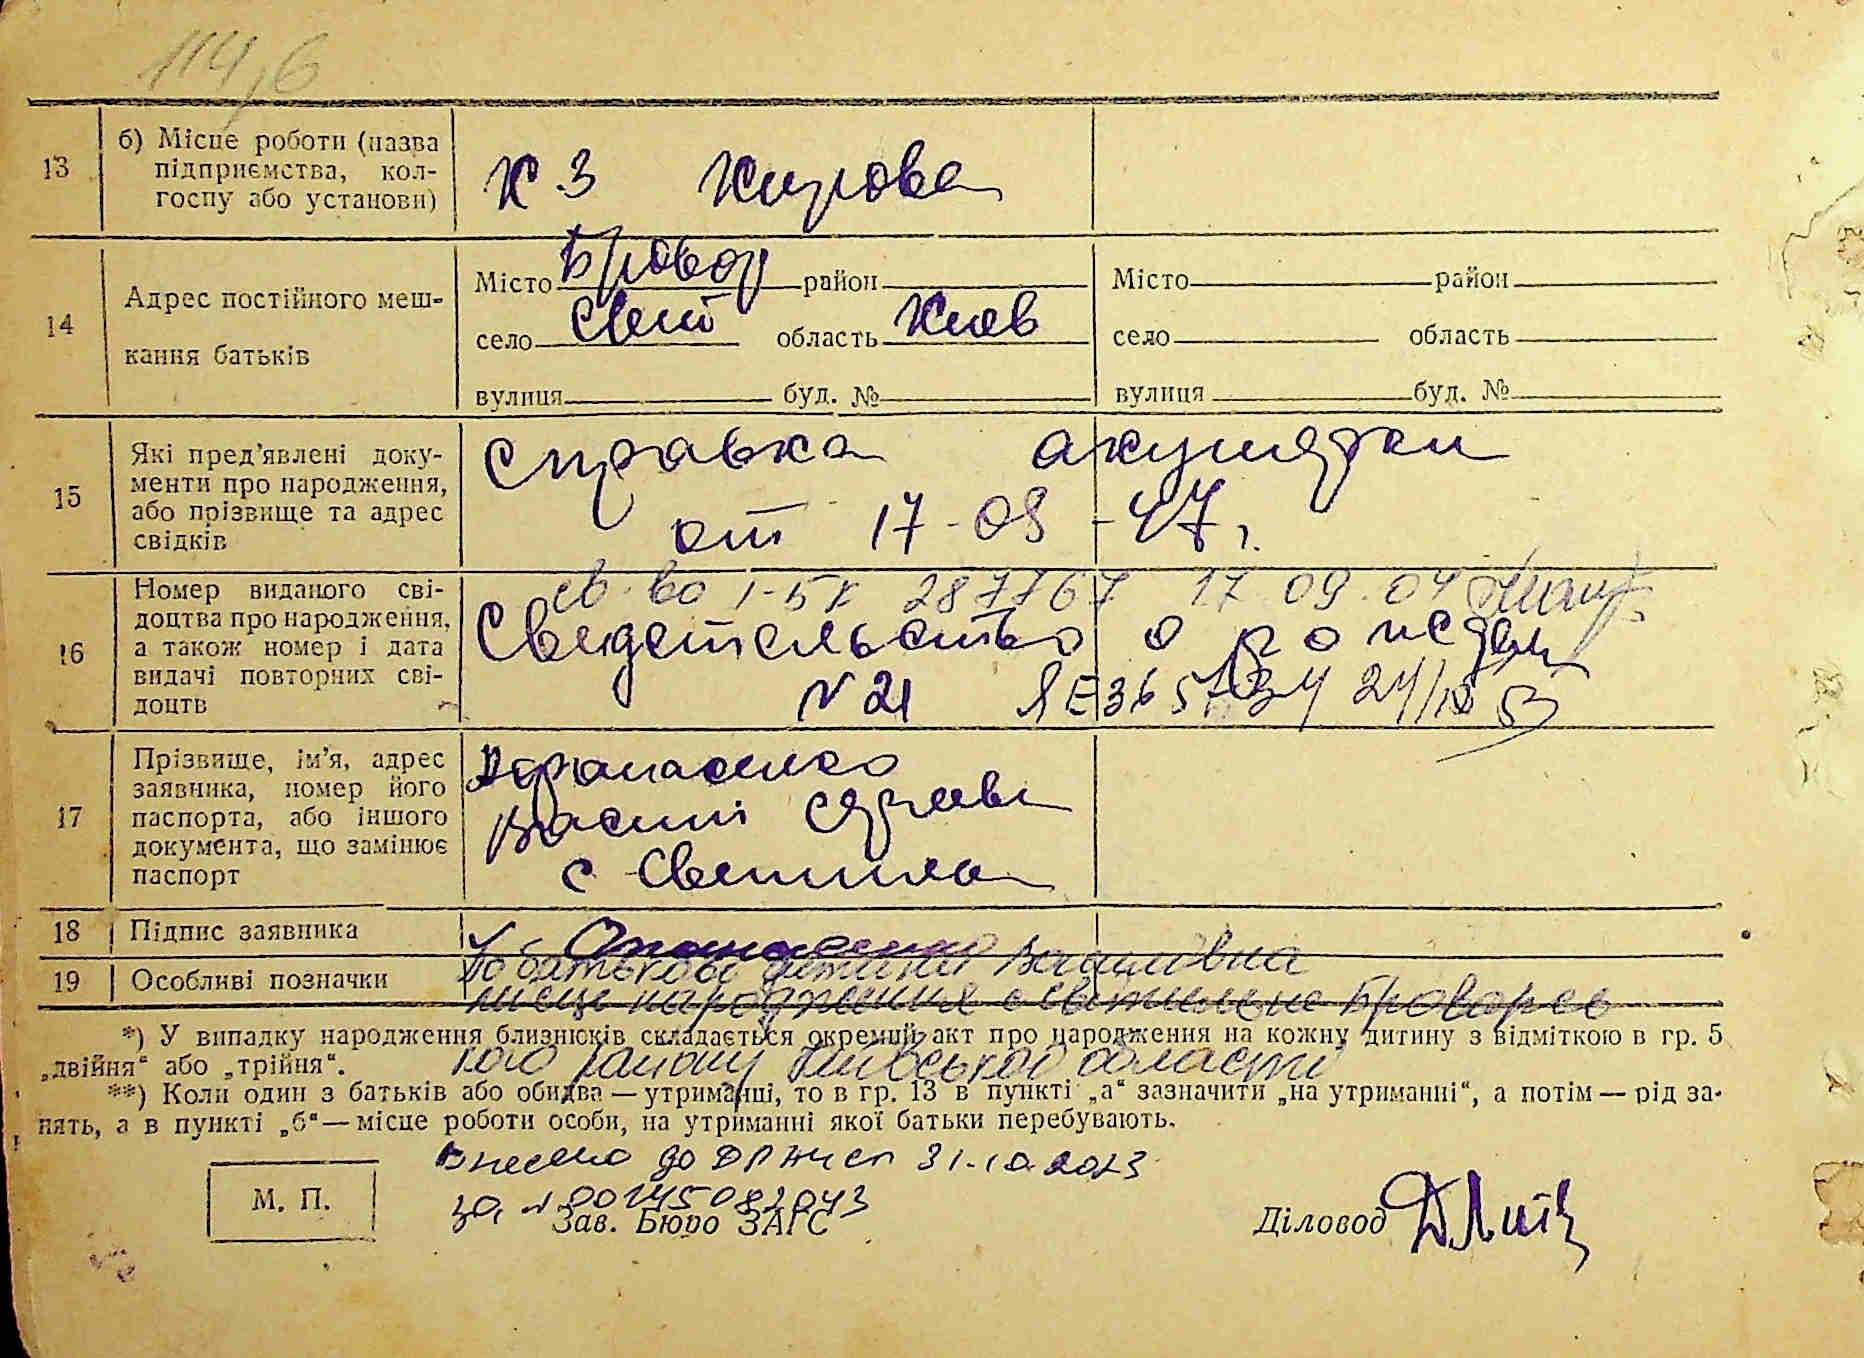 114,6
13
б) Місце роботи (назва
підприємства, кол-
госпу або установи)
К.З Кирова
14
Адрес постійного меш-
кання батьків
Місто Бровар район
село Світ область Киев
вулиця буд. №
Місто район
село область
вулиця буд. №
15
Які пред'явлені доку-
менти про народження,
або прізвище та адрес
свідків
справка акушерки
от 17-09-47г.
16
Номер виданого сві-
доцтва про народження,
а також номер і дата
видачі повторних сві-
доцтв
св-во 1-БК 287767 17 09.04
Свидетельство о рожден
N 21 ЯЕ 24/
17
Прізвище, ім'я, адрес
заявника, номер його
паспорта, або іншого
документа, що замінює
паспорт
Василі
с Світильна
18
Підпис заявника
Опанасенко
19
Особливі позначки
По батькові дитини Василівна
місце народження с Світильне Броварсь
кого району Київської області
*) У випадку народження близнюків складається окремий акт про народження на кожну дитину з відміткою в гр. 5
„двійня“ або „трійня“.
**) Коли один з батьків або обидва — утриманці, то в гр. 13 в пункті „а“ зазначити „на утриманні“, а потім — рід за-
нять, а в пункті „б“ — місце роботи особи, на утриманні якої батьки перебувають.
Внесено до ДРАЦСГ 31.10.2023
за N 00145082043
М. П.
Зав. Бюро ЗАГС
Діловод